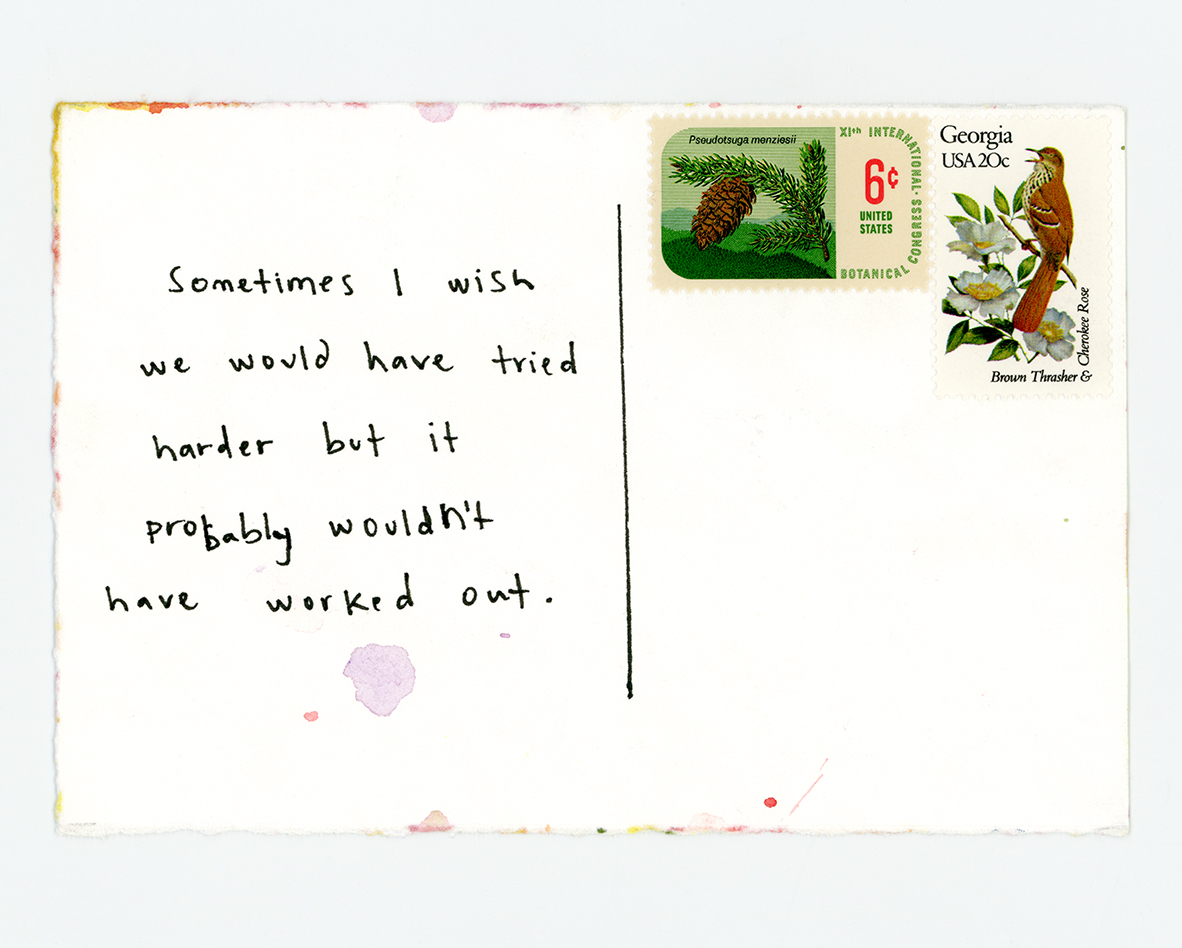 Sometimes I wish
we would have tried
harder but it
probably wouldn't
have worked out.
Pseudotsuga menziesii
XIth INTERNATIONAL BOTANICAL CONGRESS
6¢
UNITED
STATES
Georgia
USA 20c
Brown Thrasher &
Cherokee Rose